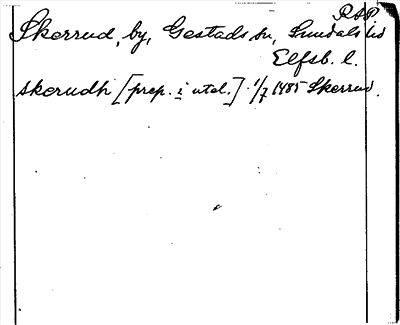 RAP
Skerrud, by, Gestads sn, Sundals hd
Elfsb. l.
skerudh [prep. i utel.] 1/7 1485 Skerrud.